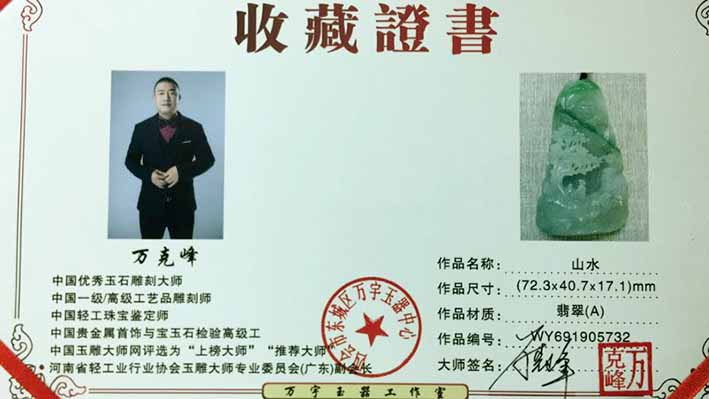 收藏證書
万克峰
中国优秀玉石雕刻大师
中国一级/高级工艺品雕刻师
中国轻工珠宝鉴定师
中国贵金属首饰与宝玉石检验高级工
中国玉雕大师网评选为“上榜大师”“推荐大师”
河南省轻工业行业协会玉雕大师专业委员会(广东)副会长
四会市东城区万宇玉器中心
作品名称： 山水
作品尺寸： (72.3x40.7x17.1)mm
作品材质： 翡翠(A)
作品编号： WY691905732
大师签名：
万克峰
万宇玉器工作室